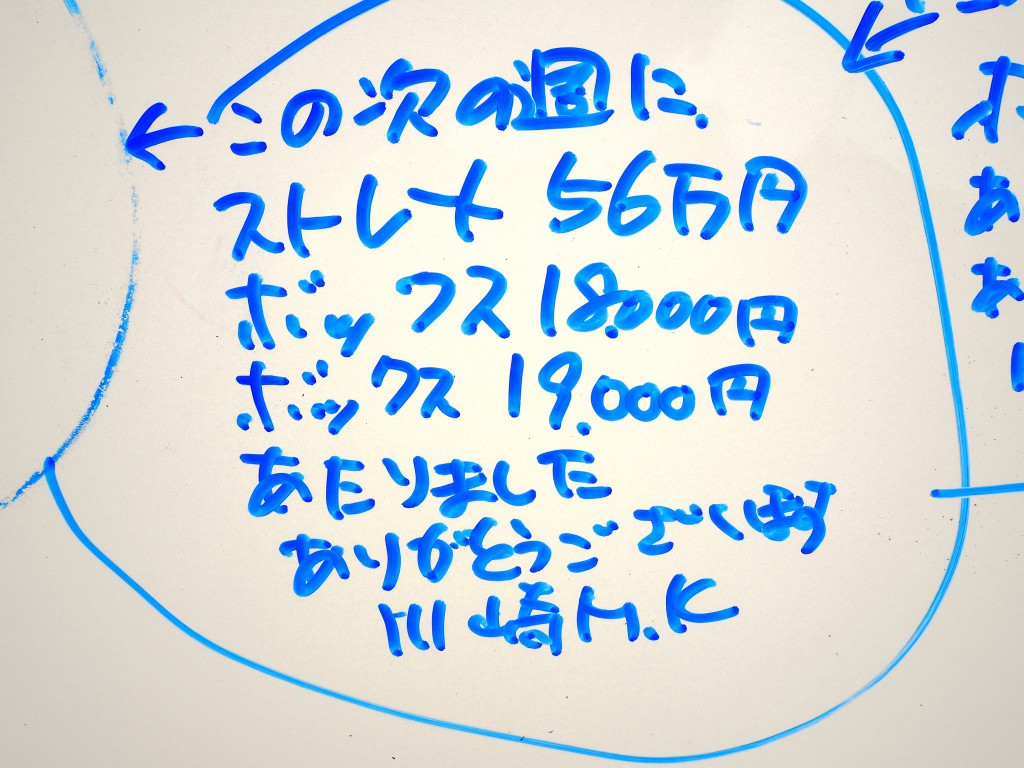 この次の週に、
ストレート 56万円
ボックス 18,000円
ボックス 19,000円
あたりました
ありがとうございます
川崎 M.K